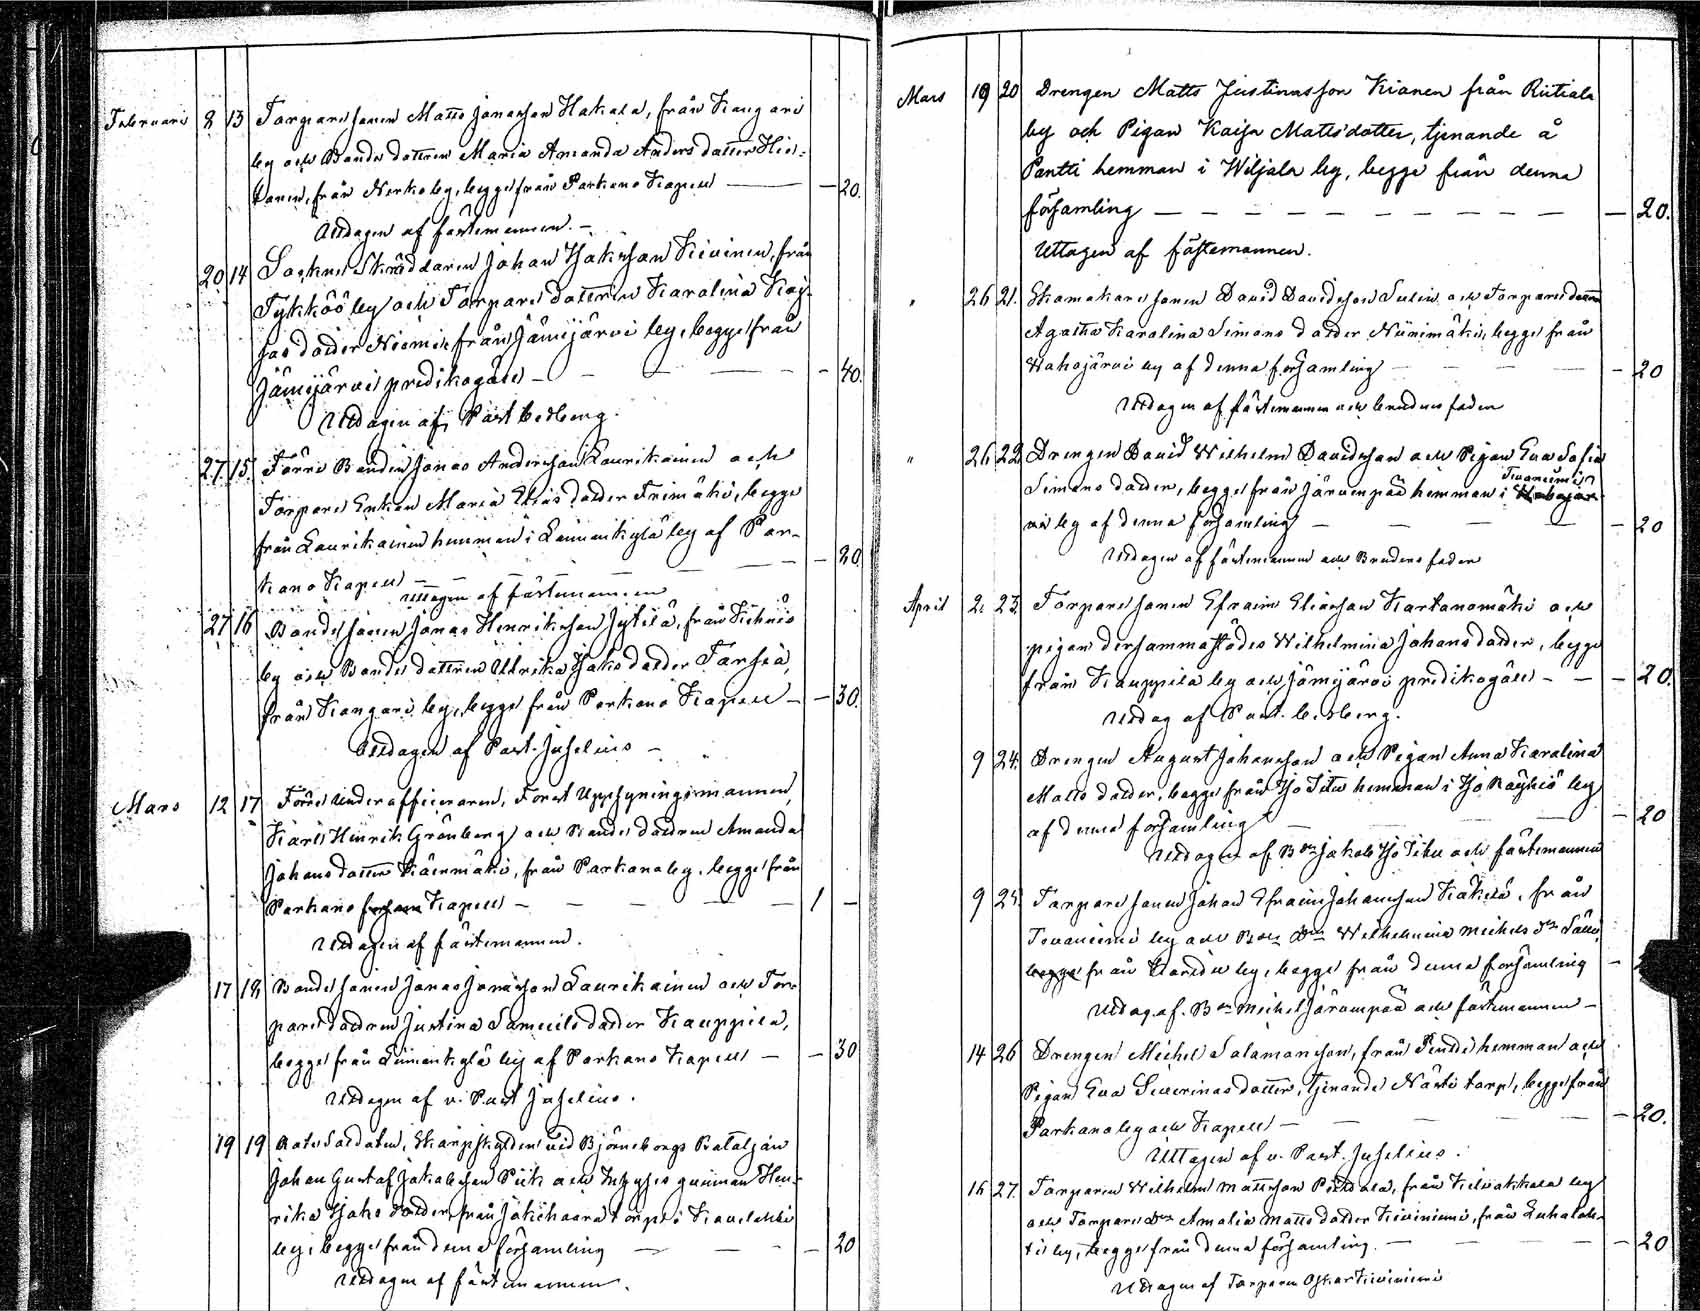 Februari 8 13 Torpare sonen Matts Jonasson Hakala, från Kangari
by och Bonde dottren Maria Amanda Anders dotter Hie-
tanen, från Norko by, begge från Parkano Kapell — — 20.
Uttagen af fästemannen. —
20 14 Sockne Skräddaren Johan Isaksson Kivinen, från
Tykköö by och Torpare dottren Karolina Kaj-
sas dotter Niemi, från Jämijärvi by, begge från
Jämijärvi predikogäll — — — — 40.
Uttagen af Past. Cedberg.
27 15. Förre Bonden Jonas Andersson Laurikainen och
Torpare Enkan Maria Elias dotter Frimäki, begge
från Laurikainen hemman i Linnankylä by af Par-
kano Kapell — — — — — 20.
Uttagen af fästemannen
27 16 Bonde sonen Jonas Henriksson Jytilä, från Kihniö
by och Bonde dottren Ulrika Isaks dotter Tarsia,
från Kangari by, begge från Parkano Kapell — — 30.
Uttagen af Past. Juselius —
Mars 12 17 Förre Underofficeraren, Forst Uppsyningsmannen,
Karl Hinrik Grönberg och Bonde dottren Amanda
Johans dotter Käenmäki, från Parkano by, begge från
Parkano Kapell — — — — 1 —
Uttagen af fästemannen.
17 18 Bonde sonen Jonas Jonasson Laurikainen och Tor-
pare dottren Justina Samuels dotter Kauppila,
begge från Linnankylä by af Parkano Kapell — — 30
Uttagen af v. Past Juselius.
19 19 Rote Soldaten, Skarpskytten vid Björneborgs Bataljon
Johan Gustaf Jakobsson Pick och Inhyses qvinnan Hen-
rika Isaks dotter, från torp i
by, begge från denna församling — — — 20
Uttagen af fästemannen.
Mars 19 20 Drengen Matts Justinasson Kianen från Riitiala
by och Pigan Kaisa Mattsdotter, tjenande å
Pantti hemman i Wiljala by, begge från denna
församling — — — — — — — — — — 20.
Uttagen af fästemannen.
" 26 21. Skomakare sonen David Davidsson Sulin och Torpare dottren
Agatha Karolina Simons dotter Niinimäki, begge från
Wahojärvi by af denna församling — — — 20
Uttagen af fästemannen och brudens fader
" 26 22 Drengen David Wilhelm Davidsson och Pigan Eva Sofia
Simons dotter, begge från Järvenpää hemman i Tevaniemi
by af denna församling — — — — 20
Uttagen af fästemannen och Brudens fader
April 2. 23. Torpare sonen Efraim Eliasson Kartanomäki och
pigan dersammastädes Wilhelmina Johans dotter, begge
från Kauppila by och Jämijärvi predikogäll — — — 20.
Uttag af Past. Cedberg.
9 24. Drengen August Johansson och Pigan Anna Karolina
Matts dotter, begge från Iso Titu hemman i Iso Röyhiö by
af denna församling — — — 20
Uttagen af Bn Jakob Iso Titu och fästemannen
9 25. Torpare sonen Johan Efraim Johansson Käkelä, från
Tevaniemi by och Bde Dtr Wilhelmina Michels Dtr
från by, begge från denna församling —
Uttag. af Bn Michel Järvenpää och fästemannen —
14 26 Drengen Michel Salomonsson, från Pentti hemman och
Pigan Eva Severinas dotter, tjenande Närti torp, begge från
Parkano by och Kapell — — — — — 20.
Uttagen af v. Past. Juselius.
16 27. Torparen Wilhelm Mattsson från by
och Torpare Dtr Amalia Matts dotter Kiviniemi, från Luhalah-
ti by, begge från denna församling. — — — — 20
Uttagen af Torparen Oskar Kiviniemi